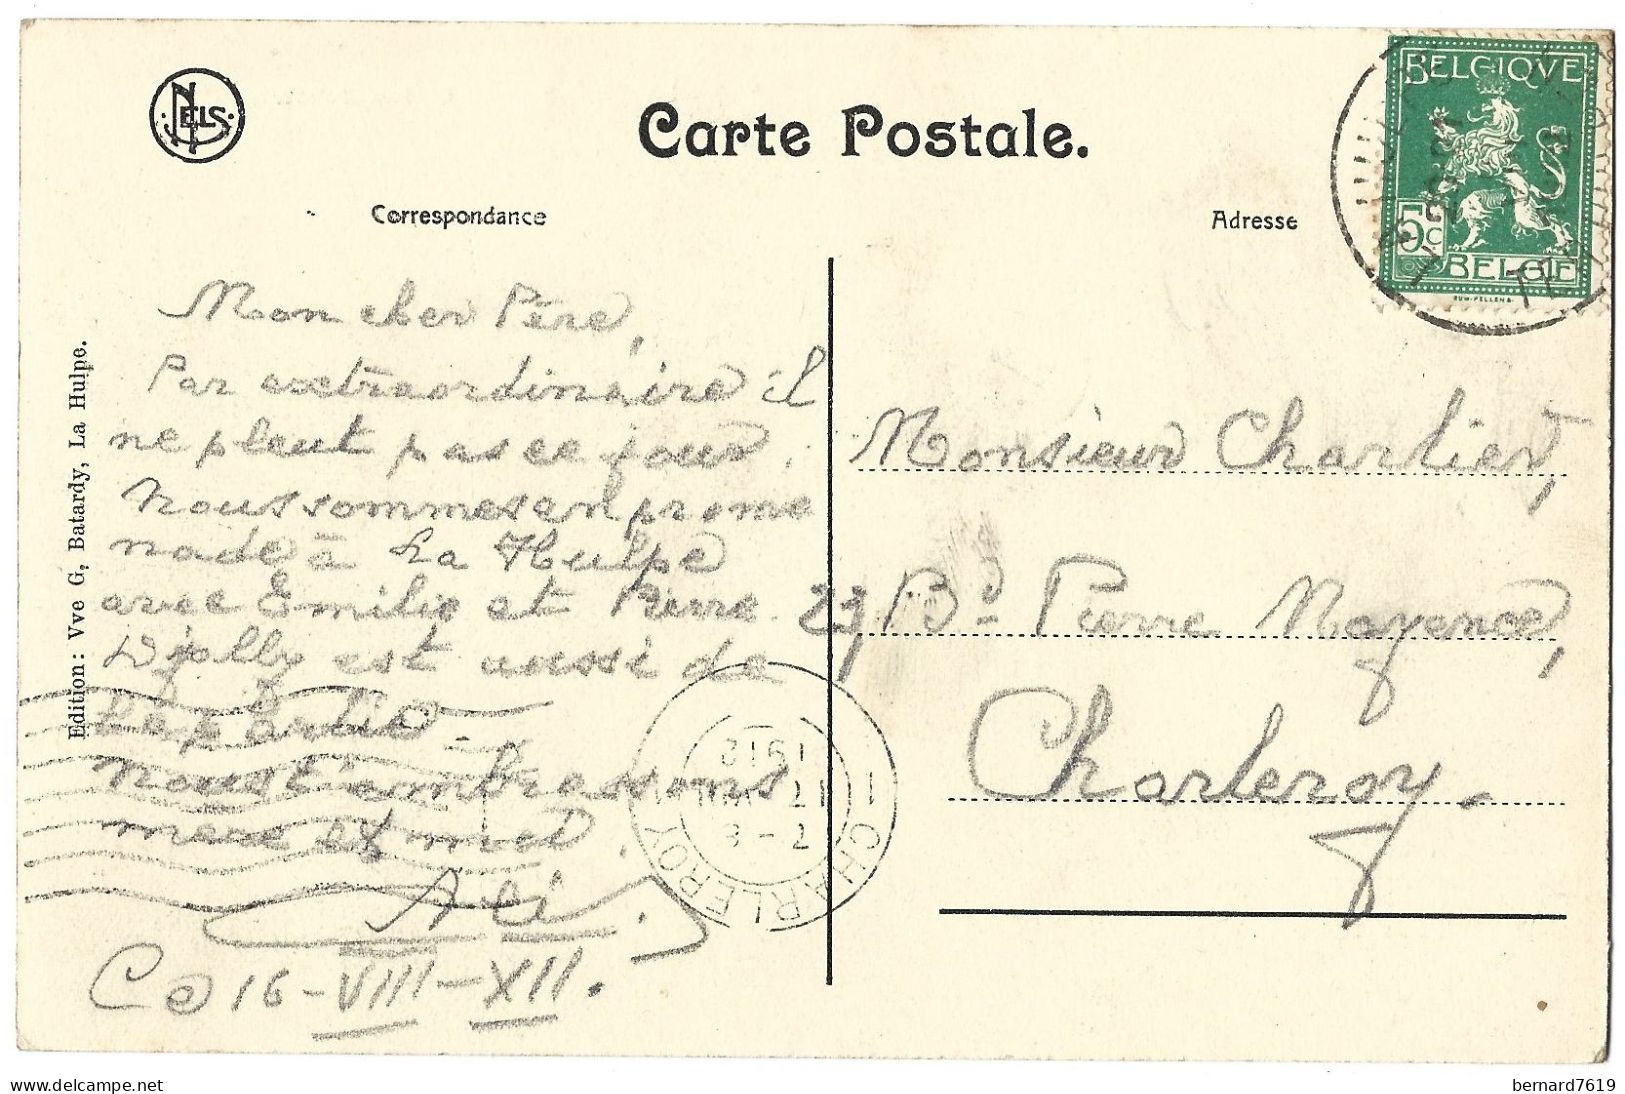 NELS
Carte Postale.
Correspondance
Adresse
BELGIQUE
5c
BELGIË
Edition: Vve G, Batardy, La Hulpe.
Mon cher Père,
Par extraordinaire il
ne pleut pas ce jour.
Nous sommes en prome
nade à La Hulpe
avec Emilie et Pierre.
Djolly est aussi de
la partie.
Nous t'embrassons
mere et moi.
Ce 16-VIII-XII.
Monsieur Charlier,
23, Bd. Pierre Mayence,
Charleroy.
1 CHARLEROY 1
7-8
17
1912
bernard7619
www.delcampe.net